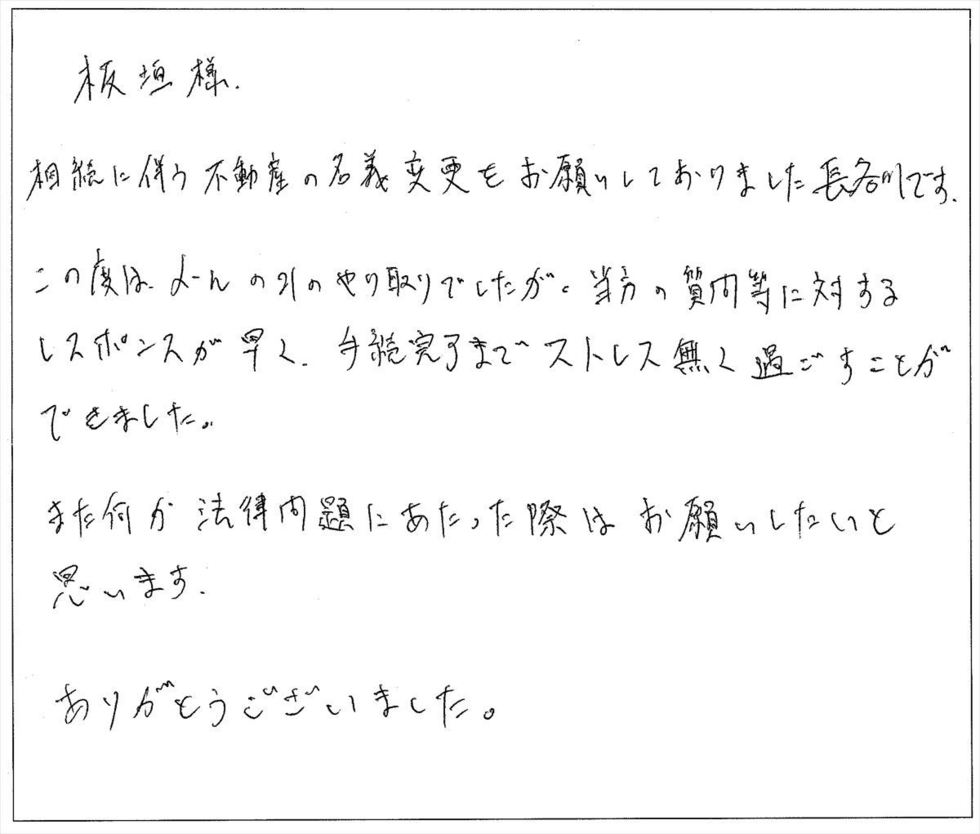 板垣様.
相続に伴う不動産の名義変更をお願いしておりました長谷川です.
この度は、メールのみのやり取りでしたが、当方の質問等に対する
レスポンスが早く、手続完了までストレス無く過ごすことが
できました。
また何か法律問題にあたった際はお願いしたいと
思います.
ありがとうございました。